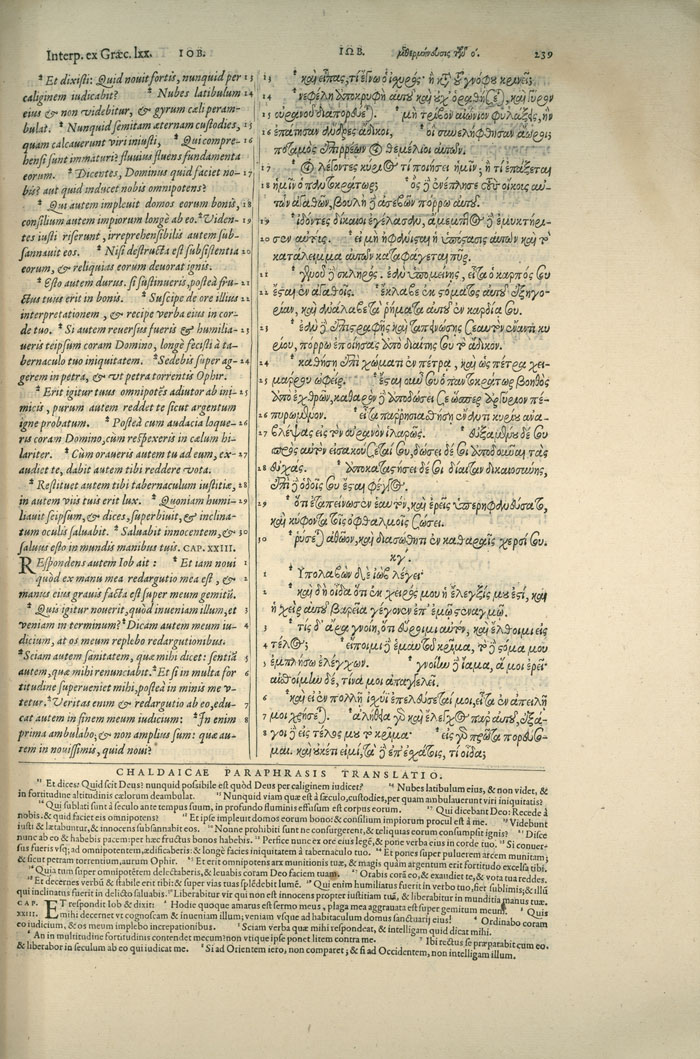 Interp. ex Græc. lxx. IOB.
* Et dixisti: Quid nouit fortis, nunquid per 13
caliginem iudicabit? * Nubes latibulum 14
eius & non videbitur, & gyrum cæli peram-
bulat. * Nunquid semitam æternam custodies, 15
quam calcauerunt viri iniusti, * Qui compre- 16
hensi sunt immaturi? fluuius fluens fundamenta
eorum. * Dicentes, Dominus quid faciet no- 17
bis? aut quid inducet nobis omnipotens?
* Qui autem impleuit domos eorum bonis, 18
consilium autem impiorum longè ab eo. * Viden- 19
tes iusti riserunt, irreprehensibilis autem sub-
sannauit eos. * Nisi destructa est subsistentia 20
eorum, & reliquias eorum deuorat ignis.
* Esto autem durus. si sustinueris, postea fru- 21
ctus tuus erit in bonis. * Suscipe de ore illius 22
interpretationem, & recipe verba eius in cor-
de tuo. * Si autem reuersus fueris & humilia- 23
ueris teipsum coram Domino, longè fecisti à ta-
bernaculo tuo iniquitatem. * Sedebis super ag- 24
gerem in petra, & vt petra torrentis Ophir.
* Erit igitur tuus omnipotēs adiutor ab ini- 25
micis, purum autem reddet te sicut argentum
igne probatum. * Postea cum audacia loque- 26
ris coram Domino, cum respexeris in calum hi-
lariter. * Cùm oraueris autem tu ad eum, ex- 27
audiet te, dabit autem tibi reddere vota.
* Restituet autem tibi tabernaculum iustitiæ, 28
in autem viis tuis erit lux. * Quoniam humi- 29
liauit seipsum, & dices, superbiuit, & inclina-
tum oculis saluabit. * Saluabit innocentem, & 30
saluus esto in mundis manibus tuis. CAP. XXIII.
REspondens autem Iob ait: * Et iam noui 1
quòd ex manu mea redargutio mea est, & 2
manus eius grauis facta est super meum gemitū.
* Quis igitur nouerit, quòd inueniam illum, et 3
veniam in terminum? * Dicam autem meum iu- 4
dicium, at os meum replebo redargutionibus.
* Sciam autem sanitatem, quæ mihi dicet: sentiā 5
autem, quæ mihi renunctabit. * Et si in multa for 6
titudine superueniet mihi, postea in minis me v-
tetur. * Veritas enim & redargutio ab eo, edu- 7
cat autem in finem meum iudicium: * In enim 8
prima ambulabo, & non amplius sum: quæ au-
tem in nouissimis, quid noui?
ΙΩΒ. 239
13 καὶ εἶπας, τί ἔγνω ὁ ἰσχυρός; ἢ κατὰ τοῦ γνόφου κρινεῖ;
14 νεφέλη ἀποκρυφὴ αὐτοῦ καὶ οὐχ ὁραθήσεται, καὶ γῦρον
15 οὐρανοῦ διαπορεύεται. μὴ τρίβον αἰώνιον φυλάξεις, ἣν
16 ἐπάτησαν ἄνδρες ἄδικοι, οἳ συνελήφθησαν ἄωροι;
ποταμὸς ἐπιρρέων οἱ θεμέλιοι αὐτῶν.
17 οἱ λέγοντες κύριος τί ποιήσει ἡμῖν, ἢ τί ἐπάξεται
18 ἡμῖν ὁ παντοκράτωρ; ὃς δὲ ἐνέπλησε τοὺς οἴκους αὐ-
τῶν ἀγαθῶν, βουλὴ δὲ ἀσεβῶν πόρρω αὐτοῦ.
19 ἰδόντες δίκαιοι ἐγέλασαν, ἄμεμπτος δὲ ἐμυκτήρι-
20 σεν αὐτούς. εἰ μὴ ἠφανίσθη ἡ ὑπόστασις αὐτῶν καὶ τὸ
κατάλειμμα αὐτῶν καταφάγεται πῦρ.
21 γενοῦ δὲ σκληρός. ἐὰν ὑπομείνῃς, εἶτα ὁ καρπός σου
22 ἔσται ἐν ἀγαθοῖς. ἔκλαβε ἐκ στόματος αὐτοῦ ἐξηγο-
ρίαν, καὶ ἀνάλαβε τὰ ῥήματα αὐτοῦ ἐν καρδίᾳ σου.
23 ἐὰν δὲ ἐπιστραφῇς καὶ ταπεινώσῃς σεαυτὸν ἔναντι κυ
ρίου, πόρρω ἐποίησας ἀπὸ διαίτης σου τὸ ἄδικον.
24 καθήσῃ ἐπὶ χώματι ἐν πέτρᾳ, καὶ ὡς πέτρα χει-
25 μάρρου ὠφείρ. ἔσται οὖν σου ὁ παντοκράτωρ βοηθὸς
ἀπὸ ἐχθρῶν, καθαρὸν δὲ ἀποδώσει σε ὥσπερ ἀργύριον πε-
26 πυρωμένον. εἶτα παρρησιασθήσῃ ἐναντι κυρίου ἀνα-
27 βλέψας εἰς τὸν οὐρανὸν ἱλαρῶς. εὐξαμένου δέ σου
πρὸς αὐτὸν εἰσακούσεταί σου, δώσει δέ σοι ἀποδοῦναι τὰς
28 εὐχάς. ἀποκαταστήσει δέ σοι δίαιταν δικαιοσύνης,
ἐπὶ δὲ ὁδοῖς σου ἔσται φέγγος.
29 ὅτι ἐταπείνωσεν ἑαυτὸν, καὶ ἐρεῖς ὑπερηφανεύσατο,
καὶ κύφοντα τοῖς ὀφθαλμοῖς σώσει.
30 ῥύσεται ἀθῶον, καὶ διασώθητι ἐν καθαραῖς χερσί σου.
κγ΄.
1 Υπολαβὼν δὲ ἰὼβ λέγει·
2 καὶ δὴ οἶδα ὅτι ἐκ χειρός μου ἡ ἔλεγξίς μου ἐστί, καὶ
ἡ χεὶρ αὐτοῦ βαρεῖα γέγονεν ἐπ' ἐμῷ στεναγμῷ.
3 τίς δ' ἄρα γνοίη, ὅτι εὕροιμι αὐτὸν, καὶ ἔλθοιμι εἰς
4 τέλος; εἴποιμι δὲ ἐμαυτοῦ κρίμα, τὸ δὲ στόμα μου
5 ἐμπλήσω ἐλέγχων. γνοίην δὲ ἰάματα, ἅ μοι ἐρεῖ·
αἰσθοίμην δὲ, τίνα μοι ἀπαγγελεῖ.
6 καὶ εἰ ἐν πολλῇ ἰσχύϊ ἐπελεύσεταί μοι, εἶτα ἐν ἀπειλῇ
7 μοι χρήσεται. ἀλήθεια γὰρ καὶ ἔλεγχος παρ' αὐτοῦ, ἐξά-
8 γοι δὲ εἰς τέλος μου τὸ κρίμα· εἰς γὰρ πρῶτα πορεύσο-
μαι. καὶ οὐκέτι εἰμί, τὰ δὲ ἐπ' ἐσχάτοις, τί οἶδα;
CHALDAICAE PARAPHRASIS TRANSLATIO.
Et dices: Quid scit Deus? nunquid possibile est quòd Deus per caliginem iudicet? Nubes latibulum eius, & non videt, &
in fortitudine altitudinis cælorum deambulat. Nunquid viam quæ est à seculo, custodies, per quam ambulauerunt viri iniquitatis?
Qui sublati sunt à seculo ante tempus suum, in profundo fluminis effusum est corpus eorum. Qui dicebant Deo: Recede à
nobis: & quid faciet eis omnipotens? Et ipse impleuit domum eorum bono: & consilium impiorum procul est à me. Videbunt
iusti & lætabuntur, & innocens subsannabit eos. Nonne prohibiti sunt ne consurgerent, & reliquias eorum consumpsit ignis? Disce
nunc ab eo & habebis pacem: per hæc fructus bonos habebis. Perfice nunc ex ore eius legē, & pone verba eius in corde tuo. Si conuer-
sus fueris vsq; ad omnipotentem, ædificaberis: & longè facies iniquitatem à tabernaculo tuo. Et pones super puluerem arcem munitam;
& sicut petram torrentium, aurum Ophir. Et erit omnipotens arx munitionis tuæ, & magis quàm argentum erit fortitudo excelsa tibi.
Quia tum super omnipotētem delectaberis, & leuabis coram Deo faciem tuam. Orabis corā eo, & exaudiet te, & vota tua reddes.
Et decernes verbū & stabile erit tibi: & super vias tuas splēdebit lumē. Qui enim humiliatus fuerit in verbo tuo, fiet sublimis; & illū
qui inclinatus fuerit in delicto saluabis. Liberabitur vir qui non est innocens propter iustitiam tuā, & liberabitur in munditia manus tuæ.
CAP. XXIII. ET respondit Iob & dixit: Hodie quoque amarus est sermo meus, plaga mea aggrauata est super gemitum meum. Quis
mihi decernet vt cognoscam & inueniam illum; veniam vsque ad habitaculum domus sanctuarij eius! Ordinabo coram
eo iudicium, & os meum implebo increpationibus. Sciam verba quæ mihi respondeat, & intelligam quid dicat mihi.
An in multitudine fortitudinis contendet mecum? non vtique ipse ponet litem contra me. Ibi rectus se præparabit cum eo.
& liberabor in seculum ab eo qui iudicat me. Si ad Orientem iero, non comparet; & si ad Occidentem, non intelligam illum.